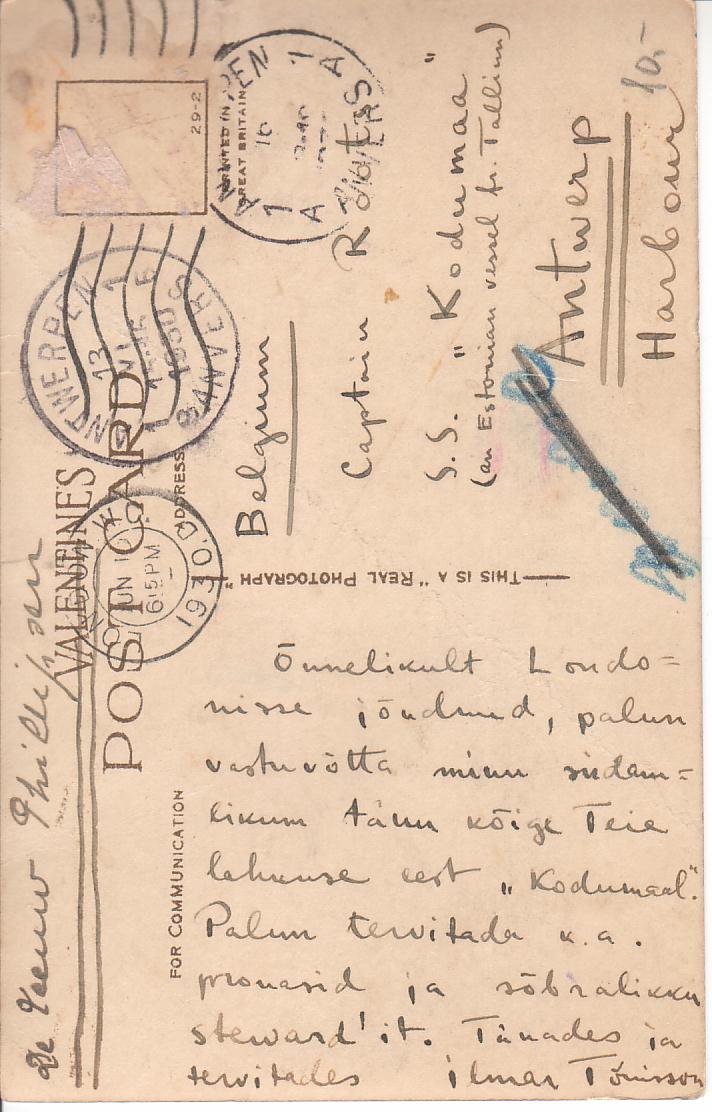 VALENTINE'S
POST CARD
FOR COMMUNICATION
ADDRESS
PRINTED IN
GREAT BRITAIN
29-2
THIS IS A "REAL PHOTOGRAPH"
Õnnelikult Londo=
nisse jõudnud, palun
vastuvõtta minu südam=
likum tänu kõige Teie
lahkuse eest "Kodumaal".
Palun tervitada k.a.
prouasid ja sõbralikku
steward'it. Tänades ja
tervitades Ilmar Tõnisson
Belgium
Captain
S.S. "Kodumaa"
(an Estonian vessel fr. Tallinn)
Antwerp
Harbour
10.-
De Leeuw Phillipsen
ANTWERPEN 1
13 VI
1930
ANVERS
ANTWERPEN 1
1 A
ANVERS
LONDON
JUN
6 15 PM
1930